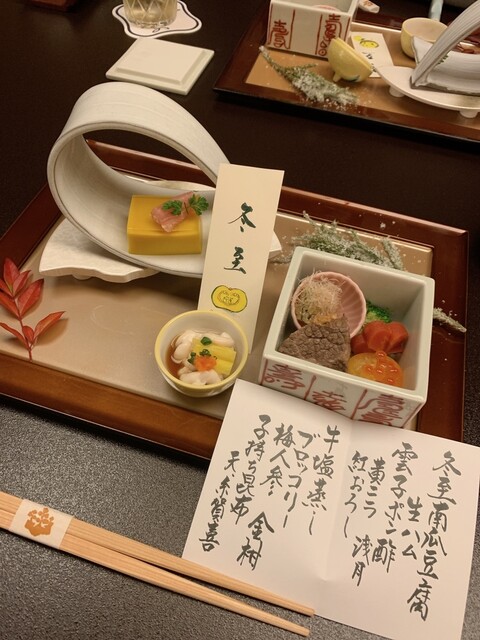 冬至
冬至南瓜豆腐
生ハム
雲子ポン酢
黄ニラ 浅月
紅おろし
牛塩蒸し
ブロッコリー
梅人参 金柑
子持ち昆布
天 糸賀喜
壽